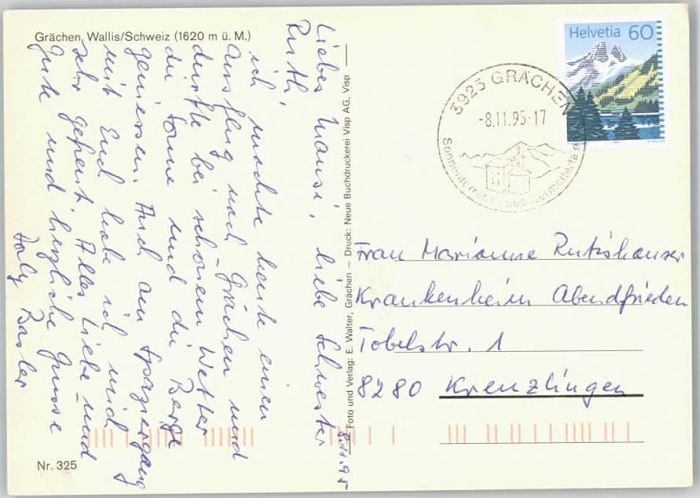 Grächen, Wallis/Schweiz (1620 m ü. M.)
8.11.95
Liebes Mausi, liebe Schwester
Ruth,
ich machte heute einen
Ausflug nach Grächen und
durfte bei schönem Wetter
die Sonne und die Berge
geniessen. Auch am Spaziergang
mit Euch habe ich mich
sehr gefreut. Alles Liebe und
Gute und herzliche Grüsse
Basler
Foto und Verlag: E. Walter, Grächen — Druck: Neue Buchdruckerei Visp AG, Visp
Helvetia 60
3925 GRÄCHEN
-8.11.95-17
Frau Marianne Rutishauser
Krankenheim Abendfrieden
Tobelstr. 1
8280 Kreuzlingen
Nr. 325